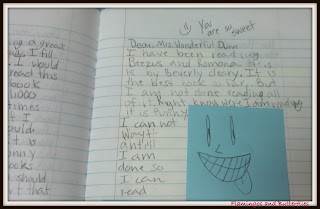 You
are so sweet
ing a great
I fill
I would
read this
book
1,000
times
I
ould
it is
unny
ooks
should
t that
Dear, Mrs. Wonderful Dunn
I have been reading
Beezus and Ramona. It is
is by Beverly cleary. It is
the best book so far. But
I am not done reading all
of it. Right know were I am reading
it is funny.
I can not
Wayt
antill
I am
done so
I can
read
Flamingos and Butterflies